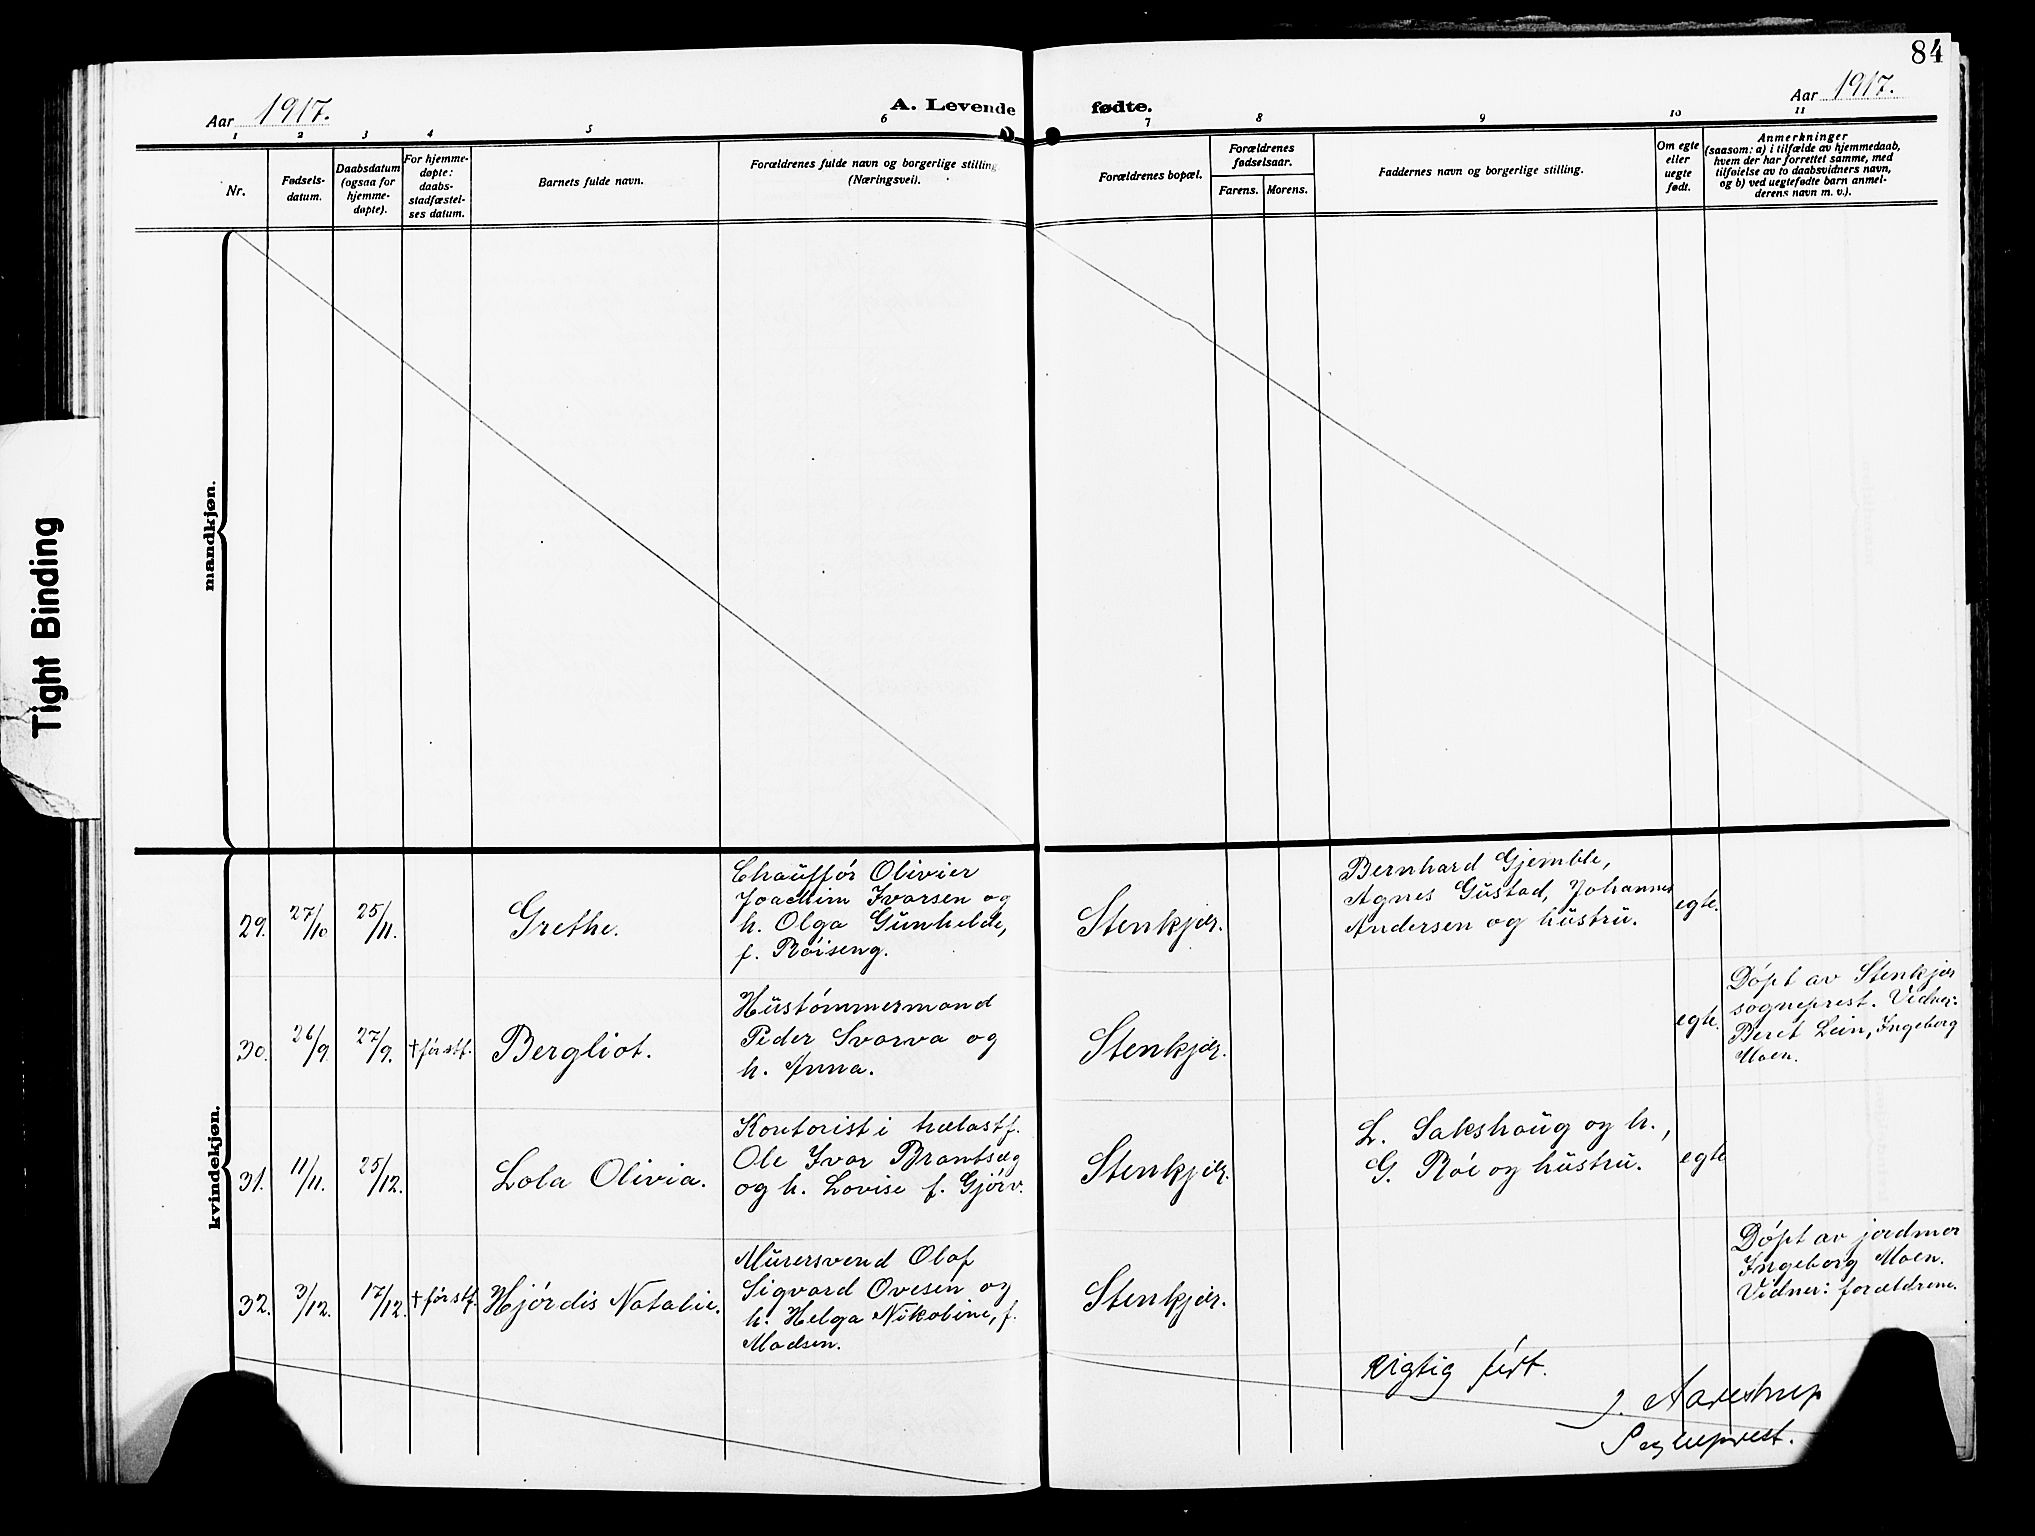 84
Aar 1917.
A. Levende
fødte.
Aar 1917.
1 2 3 4 5 6 7 8 9 10 11
Nr.
Fødsels-
datum.
Daabsdatum
(ogsaa for
hjemme-
døpte).
For hjemme-
døpte:
daabs-
stadfæstel-
ses datum.
Barnets fulde navn.
Forældrenes fulde navn og borgerlige stilling
(Næringsvei).
Forældrenes bopæl.
Forældrenes
fødselsaar.
Farens. Morens.
Faddernes navn og borgerlige stilling.
Om egte
eller
uegte
født.
Anmerkninger
(saasom: a) i tilfælde av hjemmedaab,
hvem der har forrettet samme, med
tilføielse av to daabsvidners navn,
og b) ved uegtefødte barn anmel-
derens navn m. v.).
Tight Binding
mandkjøn.
kvindekjøn.
29. 27/10 25/11. Grethe.
Chauffør Olivier
Joachim Ivarsen og
h. Olga Gunhilde,
f. Røiseng.
Stenkjær.
Bernhard Gjemble,
Agnes Gustad, Johannes
Andersen og hustru.
egte.
30. 26/9. 27/9. † før stf. Bergliot.
Hustømmermand
Peder Svarva og
h. Anna.
Stenkjær.
egte.
Døpt av Stenkjær
sogneprest. Vidner:
Beret Lein, Ingeborg
Moen.
31. 11/11. 25/12. Lola Olivia.
Kontorist i trælastf.
Ole Ivar Brantsæg
og h. Lovise f. Gjørv.
Stenkjær.
L. Sakshaug og h.,
G. Røe og hustru.
egte
32. 3/12. 17/12. † før stf. Hjørdis Natalie.
Murersvend Olaf
Sigvard Ovesen og
h. Helga Nikobine, f.
Madsen.
Stenkjær.
Døpt av jordmor
Ingeborg Moen.
Vidner: forældrene.
Rigtig ført.
J. Aarestrup
Sogneprest.